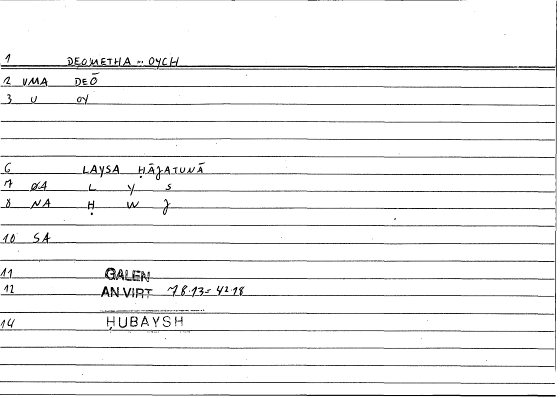 1 DEOMETHA - OYCH
2 VMA DEŌ
3 U OY
6 LAYSA ḤĀJATUNĀ
7 ØA L Y S
8 NA Ḥ W J
10 SA
11 GALEN
12 AN.VIRT 78.13 = 42.18
14 ḤUBAYSH